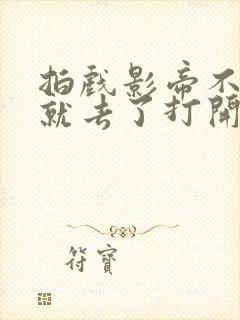 拍戏影帝不
就去了打開
符寶